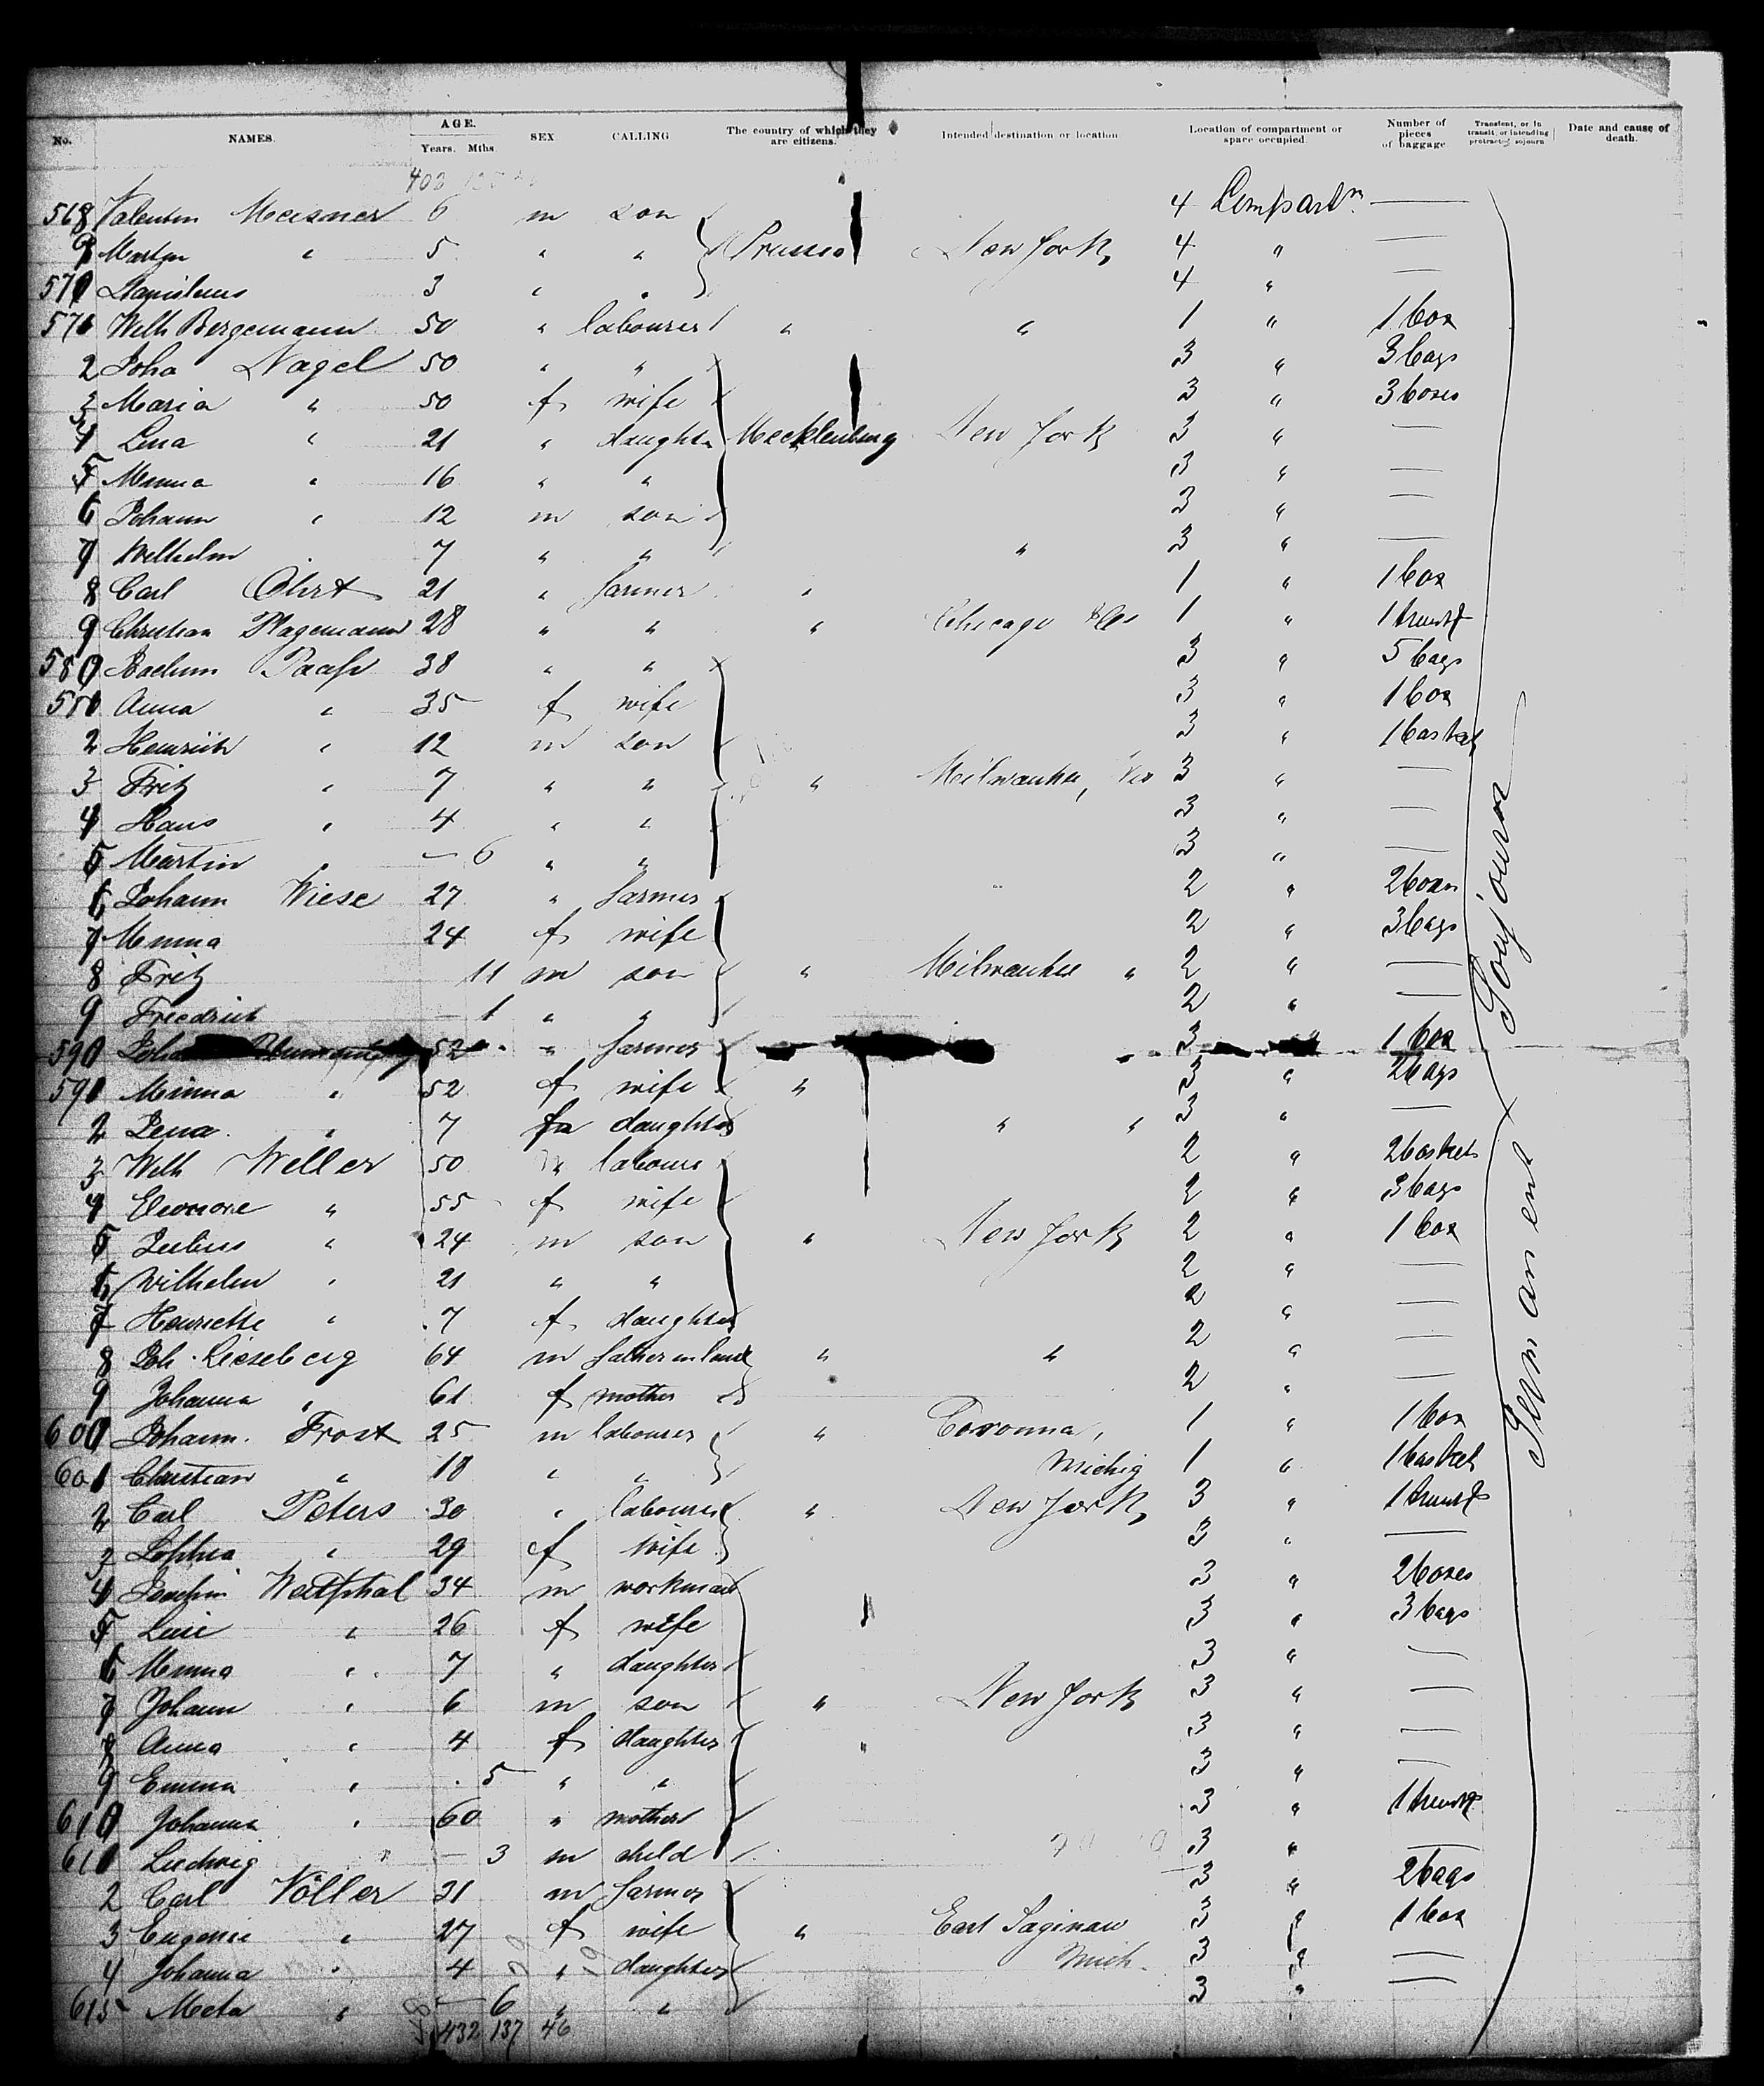 No. NAMES. AGE. Years. Mths. SEX CALLING The country of which they are citizens. Intended destination or location Location of compartment or space occupied Number of pieces of baggage Transient, or in transit, or intending protracted sojourn Date and cause of death.
568 Valentin Meisner 6 m son 4 Compartm —
9 Martin " 5 " " Prussia New York 4 " —
570 3 " " 4 " —
571 Wilh Bergemann 50 " labourer " " 1 " 1 box
2 Joha Nagel 50 " " 3 " 3 bags
3 Maria " 50 f wife 3 " 3 boxes
4 Lena " 21 " daughte Mecklenburg New York 3 " —
5 Minna " 16 " " 3 " —
6 Johann " 12 m son 3 " —
7 Wilhelm 7 " " " 3 " —
8 Carl Ohrt 21 " farmer " 1 " 1 box
9 Christian Plagemann 28 " " " Chicago 1 " 1 trunk
580 Joachim Paasch 38 " " 3 " 5 bags
581 Anna " 35 f wife 3 " 1 box
2 Heinrich " 12 m son 3 " 1 basket
3 Fritz " 7 " " " Milwaukee, Wis 3 " —
4 Hans " 4 " " 3 " —
5 Martin " — 6 " " 3 " —
6 Johann Wiese 27 " farmer 2 " 2 boxes
7 Minna 24 f wife 2 " 3 bags
8 Fritz 11 m son " Milwaukee " 2 " —
9 Friedrich — 1 " " 2 " —
590 52 " farmer 3 1 box
591 Minna " 52 f wife " 3 " 2 bags
2 Lena " 7 daughter " " 3 " —
3 Wilh Weller 50 m labourer 2 " 2 baskets
4 Eleonore " 55 f wife 2 " 3 bags
5 Julius " 24 m son " New York 2 " 1 box
6 Wilhelm " 21 " " 2 " —
7 Henriette " 7 f daughter 2 " —
8 Joh. Lieseberg 64 m father in law " " 2 " —
9 Johanna " 61 f mother 2 " —
600 Johann. Frost 25 m labourer " Coronna, 1 " 1 box
601 Christian " 18 " " Michig 1 " 1 basket
2 Carl Peters 30 " labourer " New York, 3 " 1 trunk
3 Sophia " 29 f wife 3 " —
4 Joachim Westphal 34 m workman 3 " 2 boxes
5 " 26 f wife 3 " 3 bags
6 Minna " 7 " daughter 3 " —
7 Johann " 6 m son " New York 3 " —
8 Anna " 4 f daughter " 3 " —
9 Emma " 5 " " 3 " —
610 Johanna " 60 " mother 3 " 1 trunk
611 Ludwig — 3 m child 3 " —
2 Carl Völler 31 m farmer 3 " 2 bags
3 Eugenie " 27 f wife " East Saginaw 3 " 1 box
4 Johanna " 4 " daughter Mich. 3 " —
615 Meta " — 6 " " 3 " —
432 137 46
Permanent Soujourn